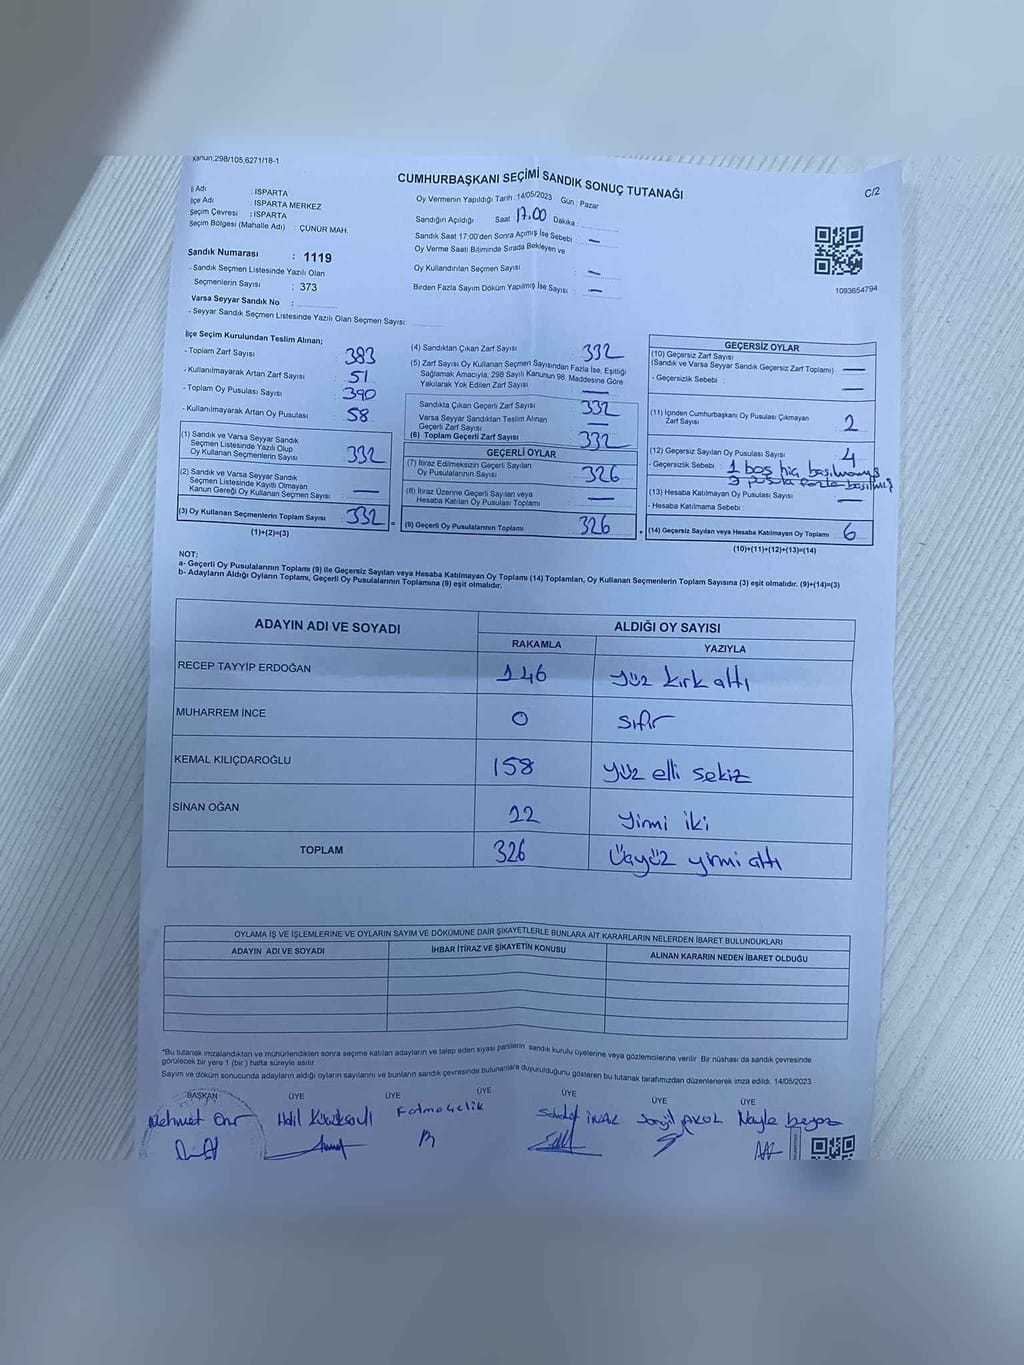 Kanun,298/105,6271/18-1
CUMHURBAŞKANI SEÇİMİ SANDIK SONUÇ TUTANAĞI
C/2
İl Adı : ISPARTA
İlçe Adı : ISPARTA MERKEZ
Seçim Çevresi : ISPARTA
Seçim Bölgesi (Mahalle Adı) : ÇÜNÜR MAH.
Sandık Numarası : 1119
- Sandık Seçmen Listesinde Yazılı Olan
Seçmenlerin Sayısı : 373
Varsa Seyyar Sandık No :
- Seyyar Sandık Seçmen Listesinde Yazılı Olan Seçmen Sayısı:
Oy Vermenin Yapıldığı Tarih : 14/05/2023 Gün : Pazar
Sandığın Açıldığı Saat 17.00 Dakika :
Sandık Saat 17.00'den Sonra Açılmış İse Sebebi : —
Oy Verme Saati Bitiminde Sırada Bekleyen ve
Oy Kullandırılan Seçmen Sayısı : —
Birden Fazla Sayım Döküm Yapılmış İse Sayısı : —
1093654794
İlçe Seçim Kurulundan Teslim Alınan;
- Toplam Zarf Sayısı 383
- Kullanılmayarak Artan Zarf Sayısı 51
- Toplam Oy Pusulası Sayısı 390
- Kullanılmayarak Artan Oy Pusulası 58
(1) Sandık ve Varsa Seyyar Sandık
Seçmen Listesinde Yazılı Olup
Oy Kullanan Seçmenlerin Sayısı 332
(2) Sandık ve Varsa Seyyar Sandık
Seçmen Listesinde Kayıtlı Olmayan
Kanun Gereği Oy Kullanan Seçmen Sayısı —
(3) Oy Kullanan Seçmenlerin Toplam Sayısı 332
(1)+(2)=(3)
(4) Sandıktan Çıkan Zarf Sayısı 332
(5) Zarf Sayısı Oy Kullanan Seçmen Sayısından Fazla İse, Eşitliği
Sağlamak Amacıyla; 298 Sayılı Kanunun 98. Maddesine Göre
Yakılarak Yok Edilen Zarf Sayısı —
Sandıkta Çıkan Geçerli Zarf Sayısı 332
Varsa Seyyar Sandıktan Teslim Alınan
Geçerli Zarf Sayısı —
(6) Toplam Geçerli Zarf Sayısı 332
GEÇERLİ OYLAR
(7) İtiraz Edilmeksizin Geçerli Sayılan
Oy Pusulalarının Sayısı 326
(8) İtiraz Üzerine Geçerli Sayılan veya
Hesaba Katılan Oy Pusulası Toplamı —
= (9) Geçerli Oy Pusulalarının Toplamı 326
GEÇERSİZ OYLAR
(10) Geçersiz Zarf Sayısı
(Sandık ve Varsa Seyyar Sandık Geçersiz Zarf Toplamı) : —
- Geçersizlik Sebebi : —
(11) İçinden Cumhurbaşkanı Oy Pusulası Çıkmayan
Zarf Sayısı 2
(12) Geçersiz Sayılan Oy Pusulası Sayısı 4
- Geçersizlik Sebebi : 1 boş hiç basılmamış
3 pusula fazla basılmış
(13) Hesaba Katılmayan Oy Pusulası Sayısı —
- Hesaba Katılmama Sebebi :
+ (14) Geçersiz Sayılan veya Hesaba Katılmayan Oy Toplamı 6
(10)+(11)+(12)+(13)=(14)
NOT:
a- Geçerli Oy Pusulalarının Toplamı (9) ile Geçersiz Sayılan veya Hesaba Katılmayan Oy Toplamı (14) Toplamları, Oy Kullanan Seçmenlerin Toplam Sayısına (3) eşit olmalıdır. (9)+(14)=(3)
b- Adayların Aldığı Oyların Toplamı, Geçerli Oy Pusulalarının Toplamına (9) eşit olmalıdır.
ADAYIN ADI VE SOYADI ALDIĞI OY SAYISI
RAKAMLA YAZIYLA
RECEP TAYYİP ERDOĞAN 146 yüz kırk altı
MUHARREM İNCE 0 sıfır
KEMAL KILIÇDAROĞLU 158 yüz elli sekiz
SİNAN OĞAN 22 yirmi iki
TOPLAM 326 Üçyüz yirmi altı
OYLAMA İŞ VE İŞLEMLERİNE VE OYLARIN SAYIM VE DÖKÜMÜNE DAİR ŞİKAYETLERLE BUNLARA AİT KARARLARIN NELERDEN İBARET BULUNDUKLARI
ADAYIN ADI VE SOYADI İHBAR İTİRAZ VE ŞİKAYETİN KONUSU ALINAN KARARIN NEDEN İBARET OLDUĞU
*Bu tutanak imzalandıktan ve mühürlendikten sonra seçime katılan adayların ve talep eden siyasi partilerin sandık kurulu üyelerine veya gözlemcilerine verilir. Bir nüshası da sandık çevresinde
görülecek bir yere 1 (bir) hafta süreyle asılır.
Sayım ve döküm sonucunda adayların aldığı oyların sayılarını ve bunların sandık çevresinde bulunanlara duyurulduğunu gösteren bu tutanak tarafımızdan düzenlenerek imza edildi. 14/05/2023
BAŞKAN ÜYE ÜYE ÜYE ÜYE ÜYE ÜYE
Mehmet Halil Fatma Çelik